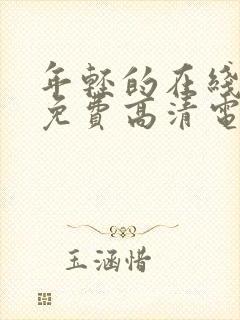 年轻的在线
免費高清電
玉涵惜